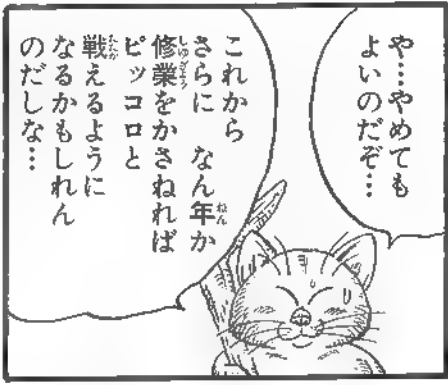 や…やめても
よいのだぞ…
これから
さらに なん年か
修業をかさねれば
ピッコロと
戦えるように
なるかもしれん
のだしな…